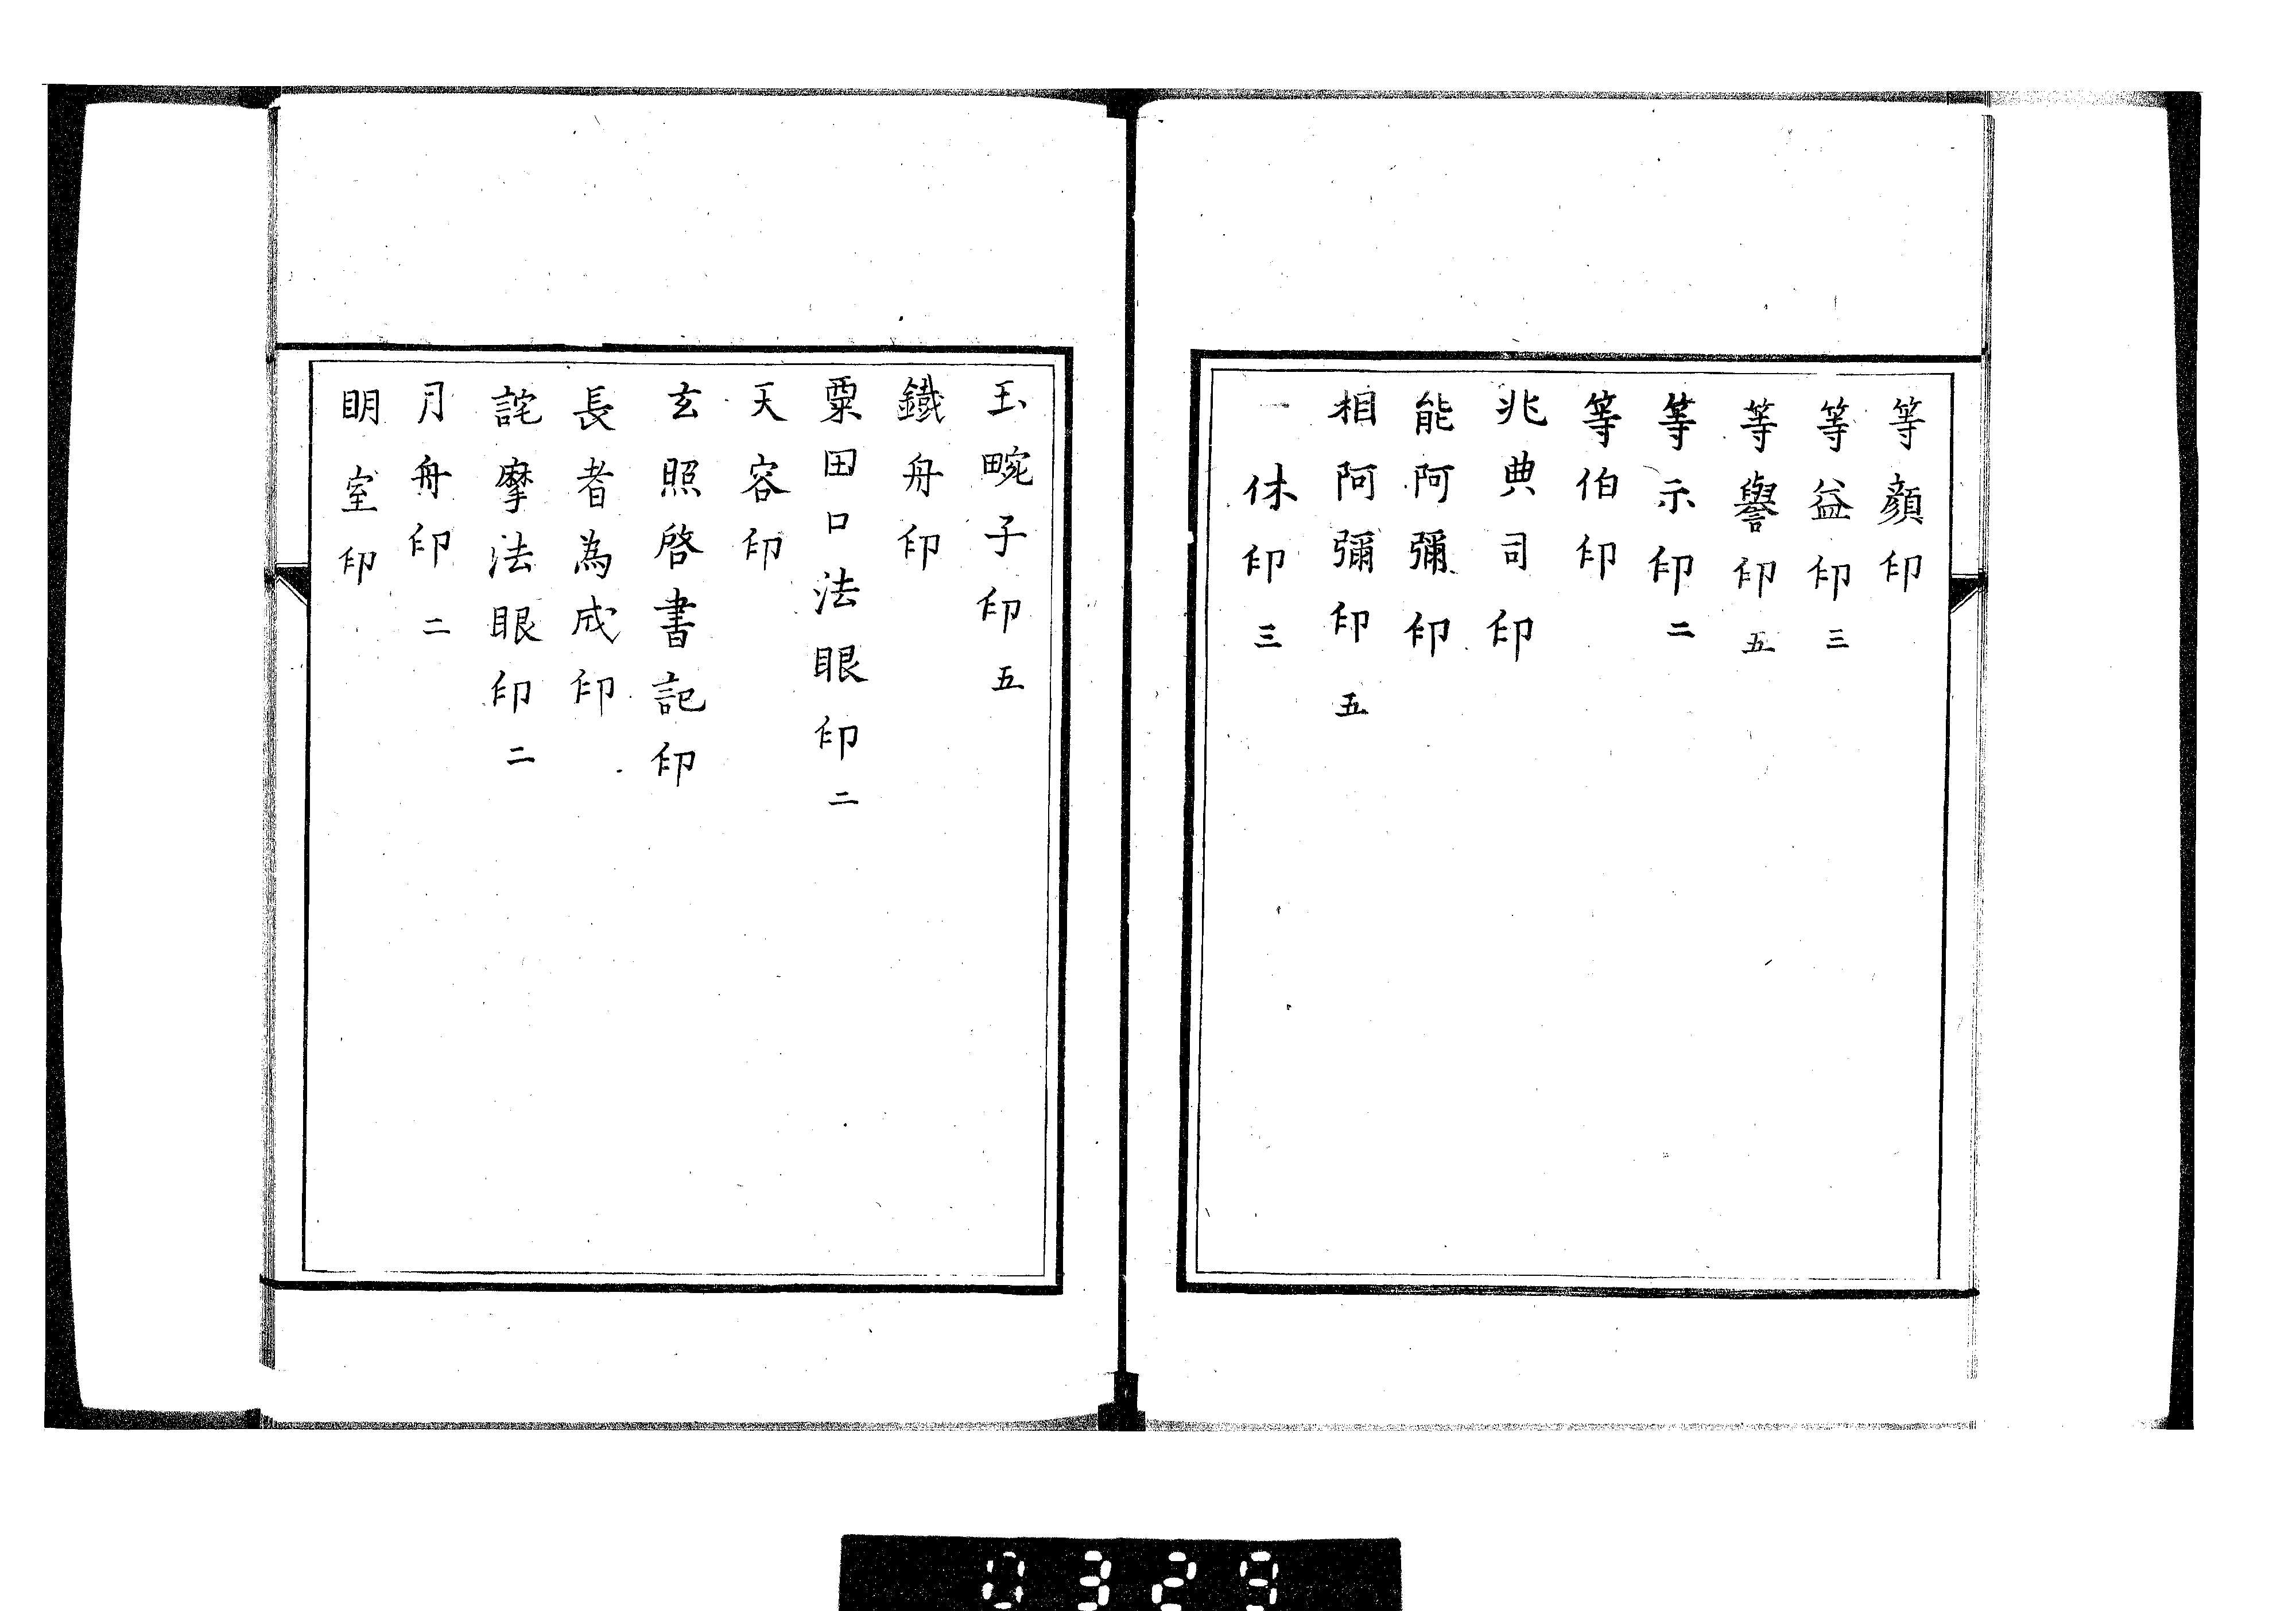 等顔印
等益印 三
等譽印 五
等示印 二
等伯印
兆典司印
能阿彌印
相阿彌印 五
一休印 三
玉畹子印 五
鐵舟印
粟田口法眼印 二
天容印
玄照啓書記印
長者為成印
詫摩法眼印 二
月舟印 二
明室印
0329